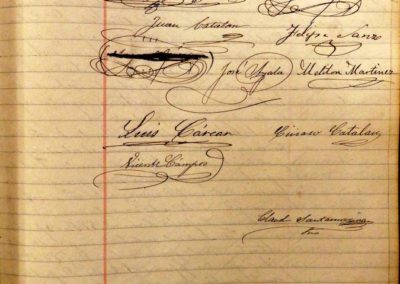 Juan Catalan
Felipe Sanz
José Ayala
Meliton Martinez
Luis Cárcar
Ciriaco Catalan
Vicente Campos
Claud Santamarina